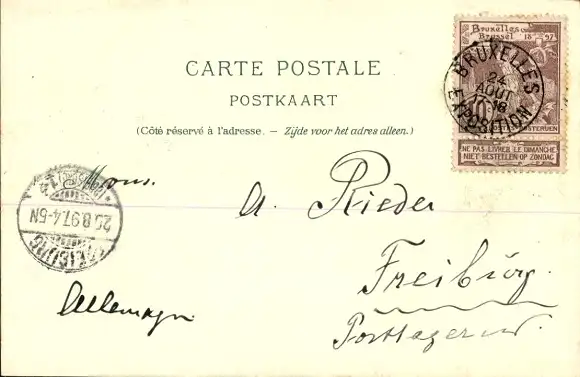 CARTE POSTALE
POSTKAART
(Côté réservé à l'adresse. – Zijde voor het adres alleen.)
Bruxelles
Brussel 1897
BRUXELLES
24
AOUT
16
EXPOSITION
10
NE PAS LIVRER LE DIMANCHE
NIET BESTELLEN OP ZONDAG
Mons.
A. Rieder
Freiburg.
Postlagernd.
Allemagne
25.8.97.4-5N
FREIBURG